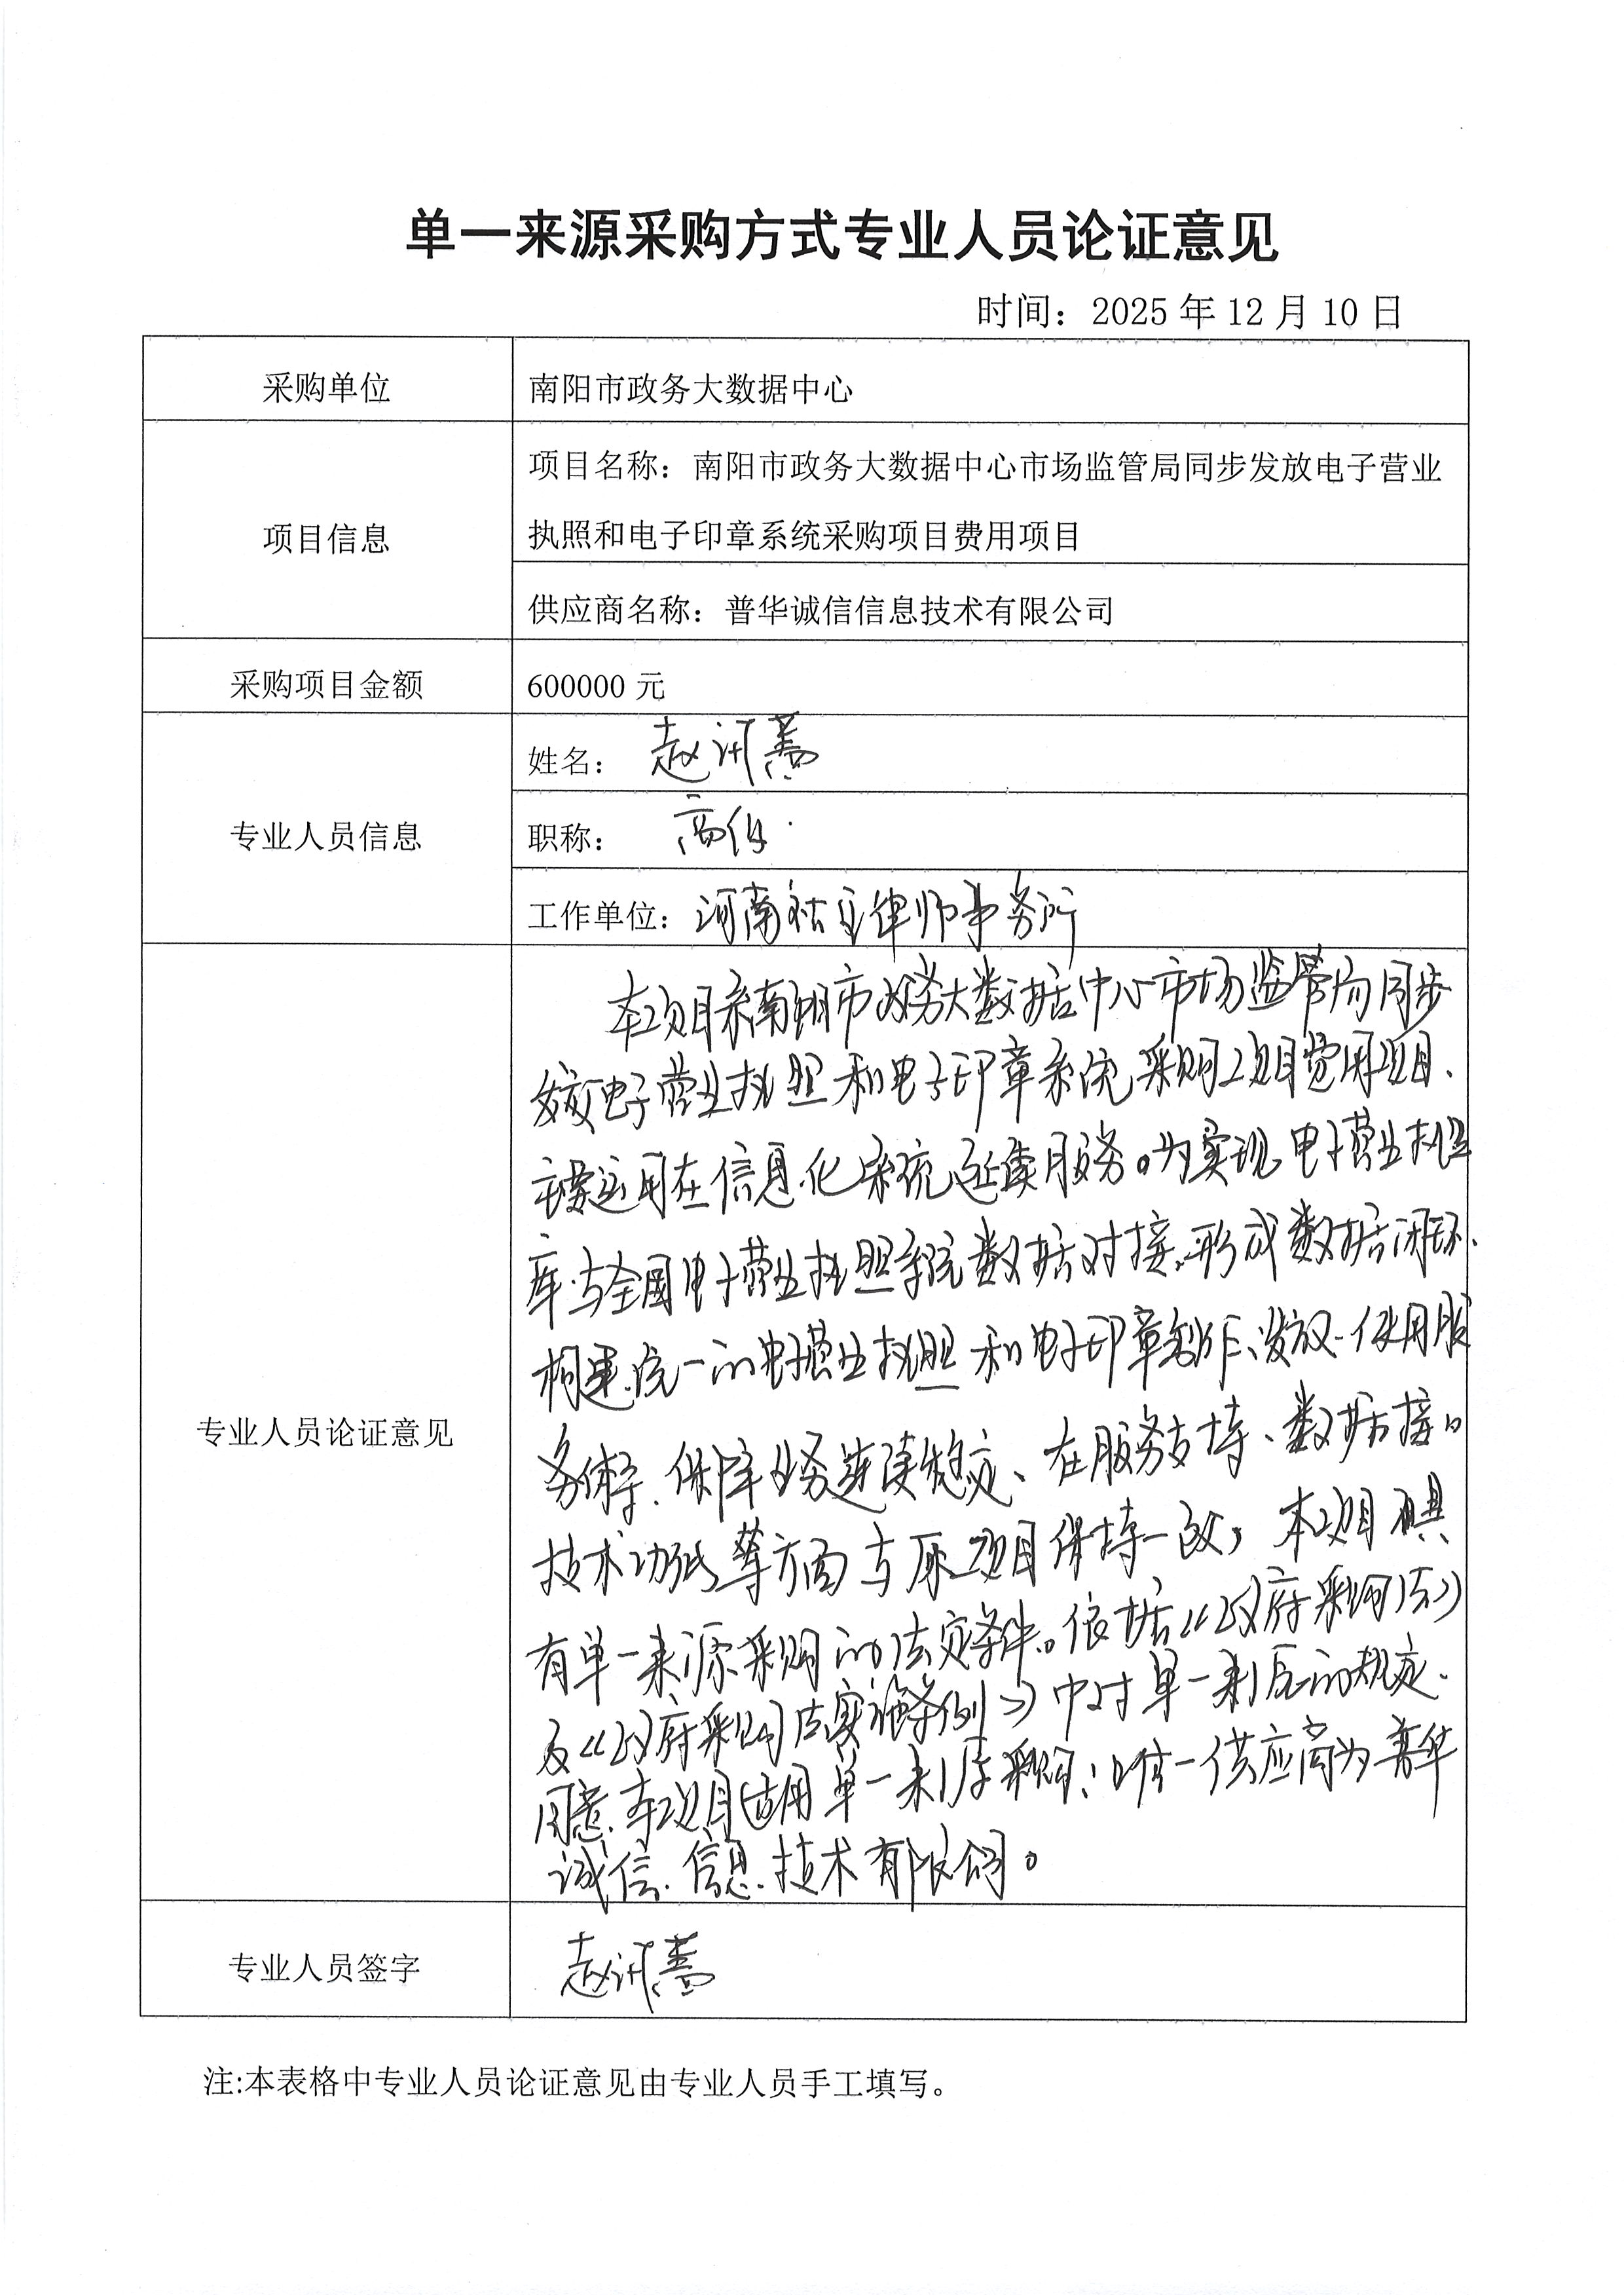 单一来源采购方式专业人员论证意见
时间：2025 年 12 月 10 日
采购单位
南阳市政务大数据中心
项目信息
项目名称：南阳市政务大数据中心市场监管局同步发放电子营业
执照和电子印章系统采购项目费用项目
供应商名称：普华诚信信息技术有限公司
采购项目金额
600000 元
专业人员信息
姓名：赵
职称：高
工作单位：河南律师事务所
专业人员论证意见
本项目系南阳市政务大数据中心市场监管局同步
发放电子营业执照和电子印章系统采购项目费用项目、
主要运用在信息化系统延续服务。为实现电子营业执照
库与全国电子营业执照系统数据对接,形成数据闭环、
构建统一的电子营业执照和电子印章制作、发放、使用服
务体系、保障业务连续稳定、在服务支持、数据接口
技术功能等方面与原项目保持一致，本项目具
有单一来源采购的法定条件。依据《政府采购法》
及《政府采购法实施条例》中对单一来源的规定.
同意.本项目适用单一来源采购；唯一供应商为普华
诚信信息技术有限公司。
专业人员签字
赵
注:本表格中专业人员论证意见由专业人员手工填写。